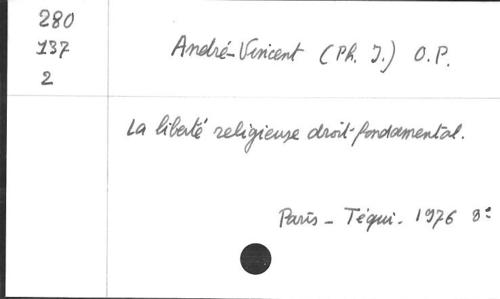 280
137
2
André-Vincent (Ph. I.) O.P.
La liberté religieuse droit fondamental.
Paris - Téqui. 1976 8°